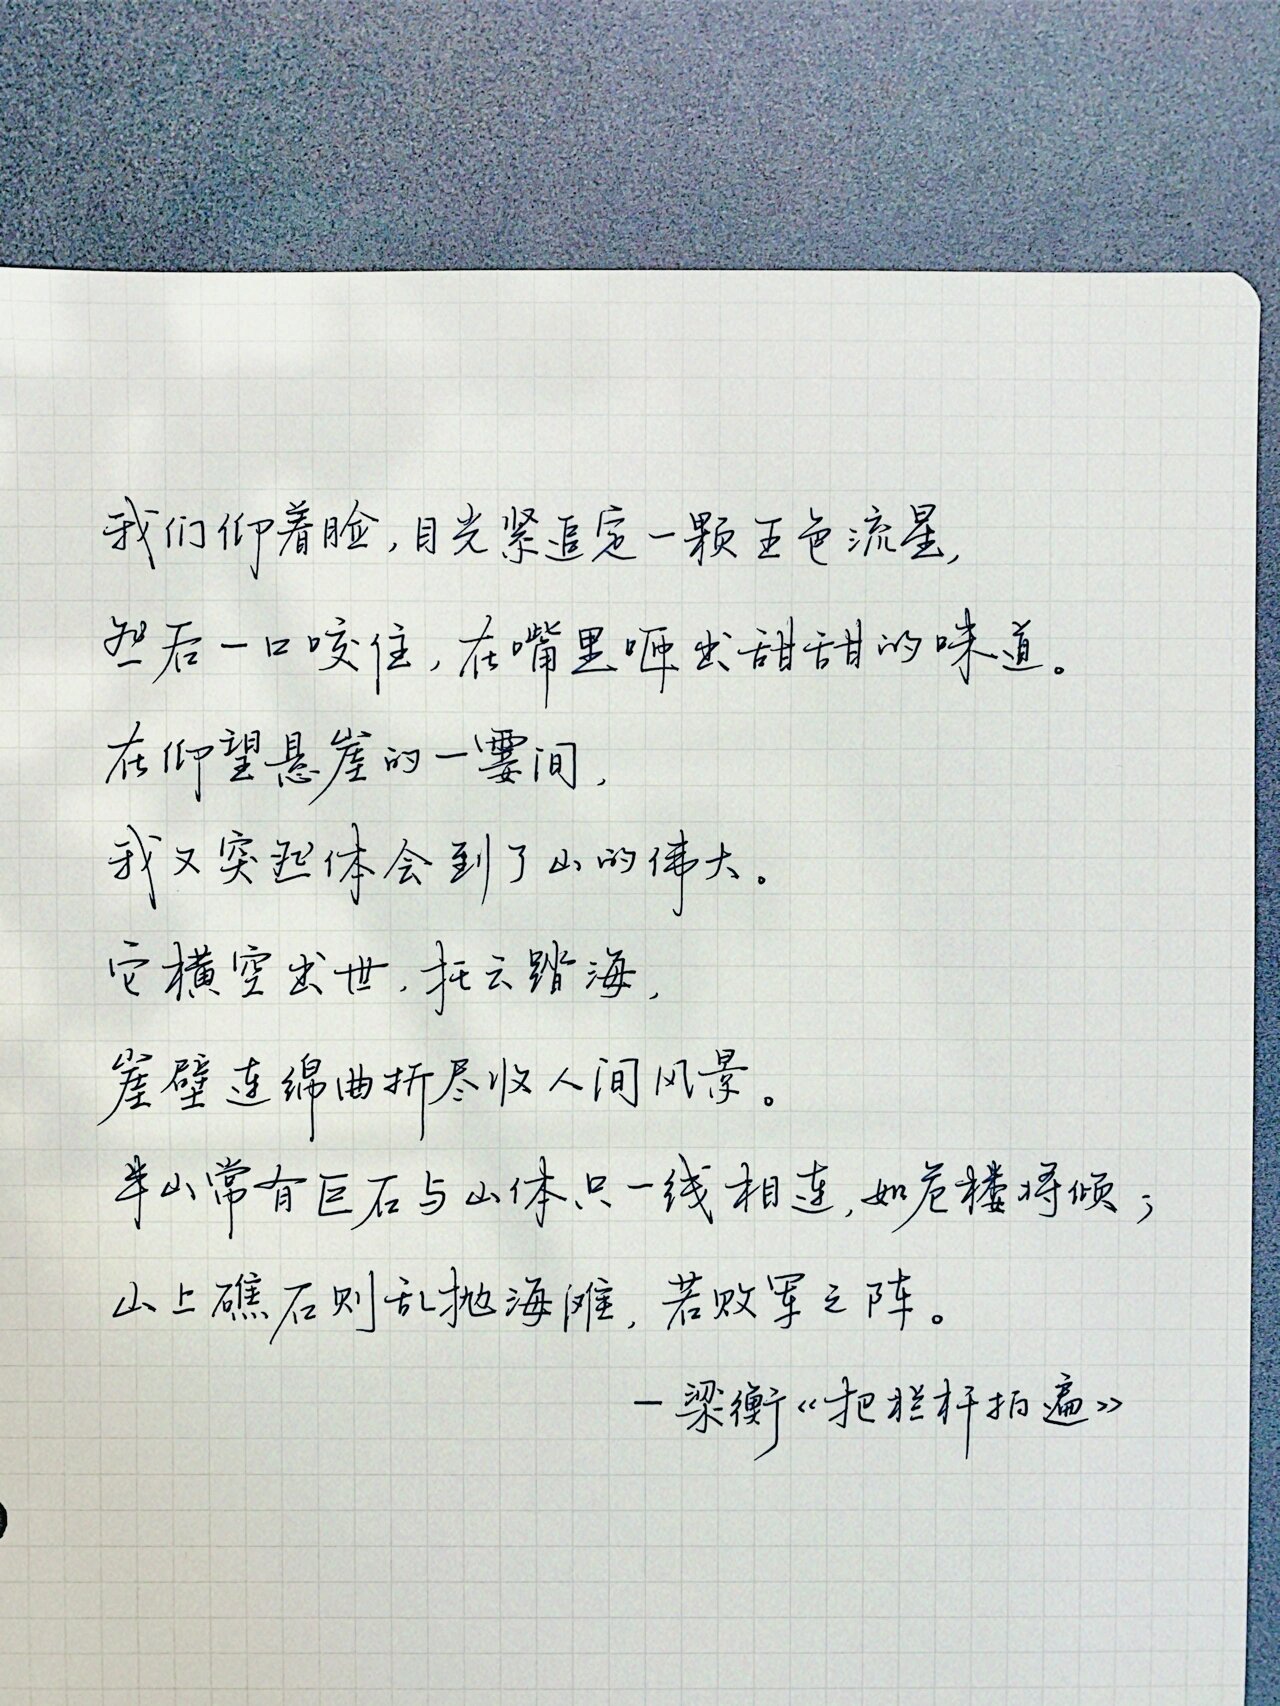 我们仰着脸,目光紧追定一颗王色流星,
然后一口咬住,在嘴里咂出甜甜的味道。
在仰望悬崖的一霎间,
我又突然体会到了山的伟大。
它横空出世,托云踏海,
崖壁连绵曲折尽收人间风景。
半山常有巨石与山体只一线相连,如危楼将倾;
山上礁石则乱抛海滩,若败军之阵。
—梁衡《把栏杆拍遍》